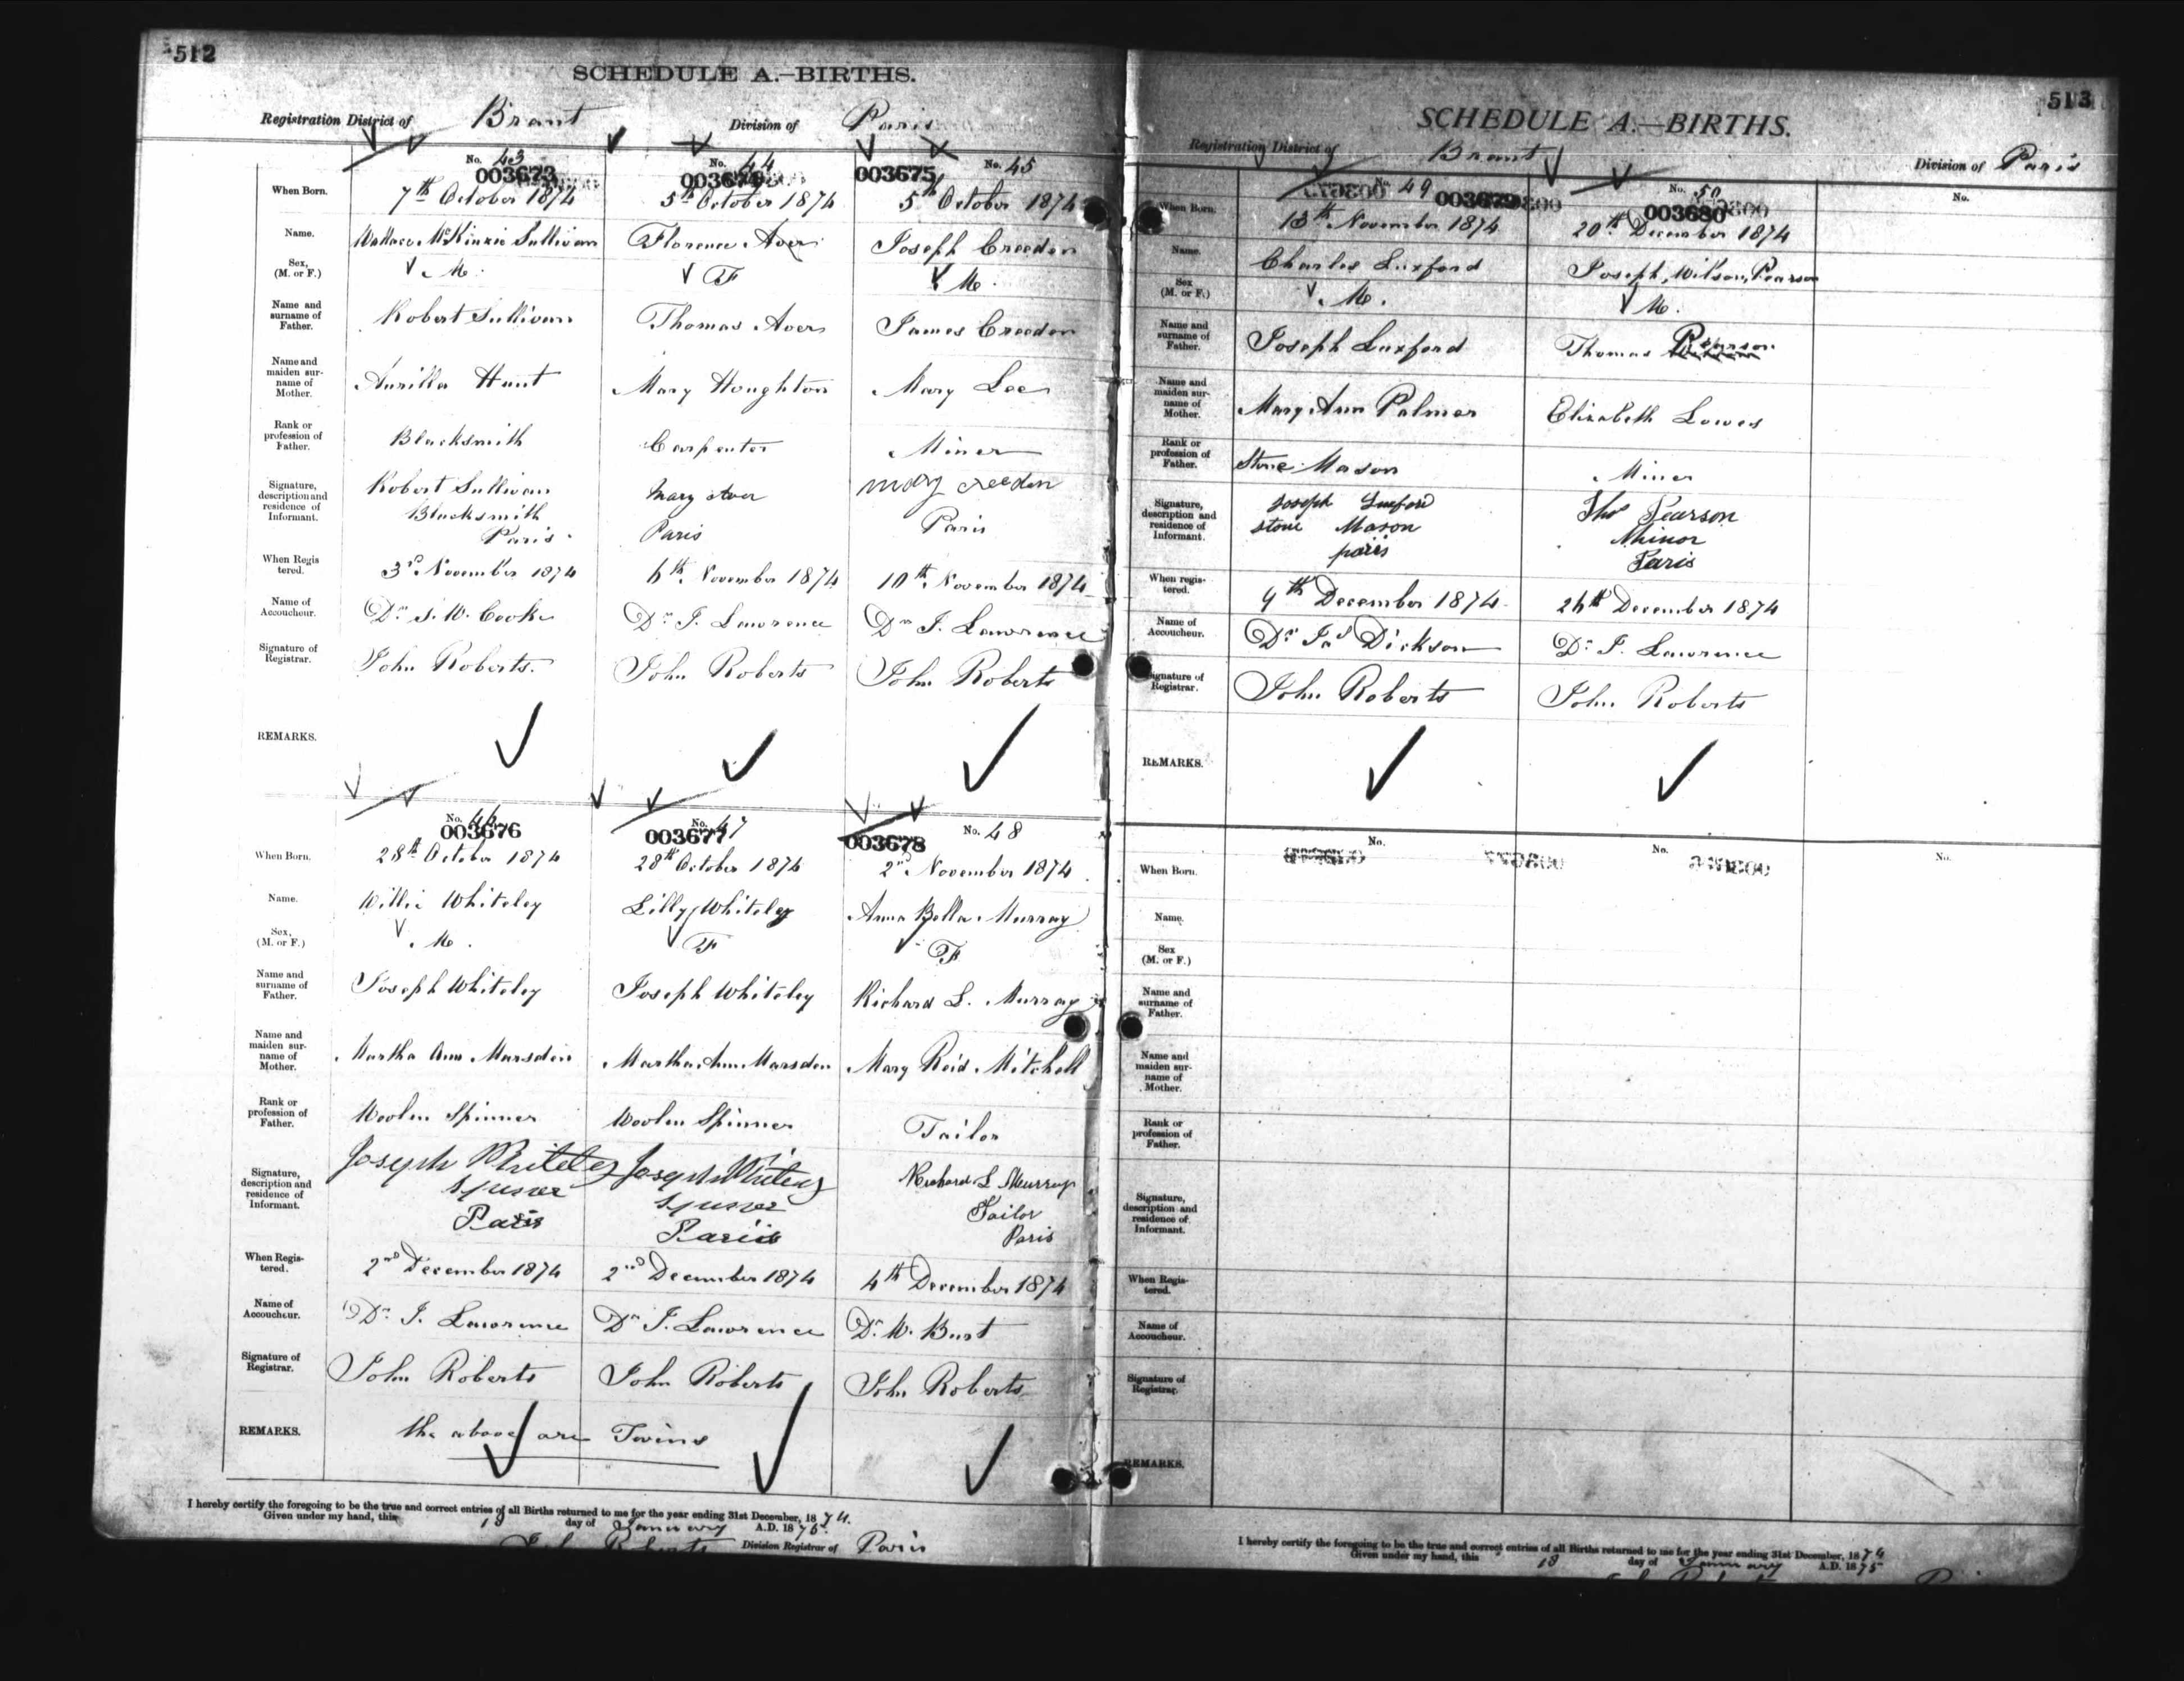 512
SCHEDULE A.—BIRTHS.
Registration District of Brant Division of Paris
No. 43 No. 44 No. 45
003673 003674 003675
When Born. 7th October 1874 5th October 1874 5th October 1874
Name. Wallace McKinzie Sullivan Florence Aver Joseph Creeden
Sex, (M. or F.) M. F M.
Name and surname of Father. Robert Sullivan Thomas Aver James Creeden
Name and maiden surname of Mother. Aurilla Hunt Mary Houghton Mary Lee
Rank or profession of Father. Blacksmith Carpenter Miner
Signature, description and residence of Informant. Robert Sullivan Mary Aver Mary Creeden
Blacksmith
Paris Paris Paris
When Registered. 3rd November 1874 6th November 1874 10th November 1874
Name of Accoucheur. Dr S. W. Cooke Dr J. Lawrence Dr J. Lawrence
Signature of Registrar. John Roberts. John Roberts John Roberts
REMARKS.
No. 46 No. 47 No. 48
003676 003677 003678
When Born. 28th October 1874 28th October 1874 2nd November 1874
Name. Willie Whiteley Lilly Whiteley Anna Bella Murray
Sex, (M. or F.) M. F F
Name and surname of Father. Joseph Whiteley Joseph Whiteley Richard L. Murray
Name and maiden surname of Mother. Martha Ann Marsden Martha Ann Marsden Mary Reid Mitchell
Rank or profession of Father. Woolen Spinner Woolen Spinner Tailor
Signature, description and residence of Informant. Joseph Whiteley Joseph Whiteley Richard L Murray
Tailor
Paris Paris Paris
When Registered. 2nd December 1874 2nd December 1874 4th December 1874
Name of Accoucheur. Dr J. Lawrence Dr J. Lawrence Dr W. Burt
Signature of Registrar. John Roberts John Roberts John Roberts
REMARKS. the above are Twins
I hereby certify the foregoing to be the true and correct entries of all Births returned to me for the year ending 31st December, 1874.
Given under my hand, this 18 day of January A.D. 1875.
John Roberts Division Registrar of Paris
513
SCHEDULE A.—BIRTHS.
Registration District of Brant Division of Paris
No. 49 No. 50 No.
003679 003680
When Born. 13th November 1874 20th December 1874
Name. Charles Luxford Joseph, Wilson, Pearson
Sex (M. or F.) M. M.
Name and surname of Father. Joseph Luxford Thomas Pearson
Name and maiden surname of Mother. Mary Ann Palmer Elizabeth Lowes
Rank or profession of Father. Stone Mason Miner
Signature, description and residence of Informant. Joseph Luxford Thos Pearson
stone Mason Minor
paris Paris
When registered. 9th December 1874 26th December 1874
Name of Accoucheur. Dr Jas Dickson Dr J. Lawrence
Signature of Registrar. John Roberts John Roberts
REMARKS.
No. No. No.
When Born.
Name.
Sex (M. or F.)
Name and surname of Father.
Name and maiden surname of Mother.
Rank or profession of Father.
Signature, description and residence of Informant.
When Registered.
Name of Accoucheur.
Signature of Registrar.
REMARKS.
I hereby certify the foregoing to be the true and correct entries of all Births returned to me for the year ending 31st December, 1874
Given under my hand, this 18 day of January A.D. 1875